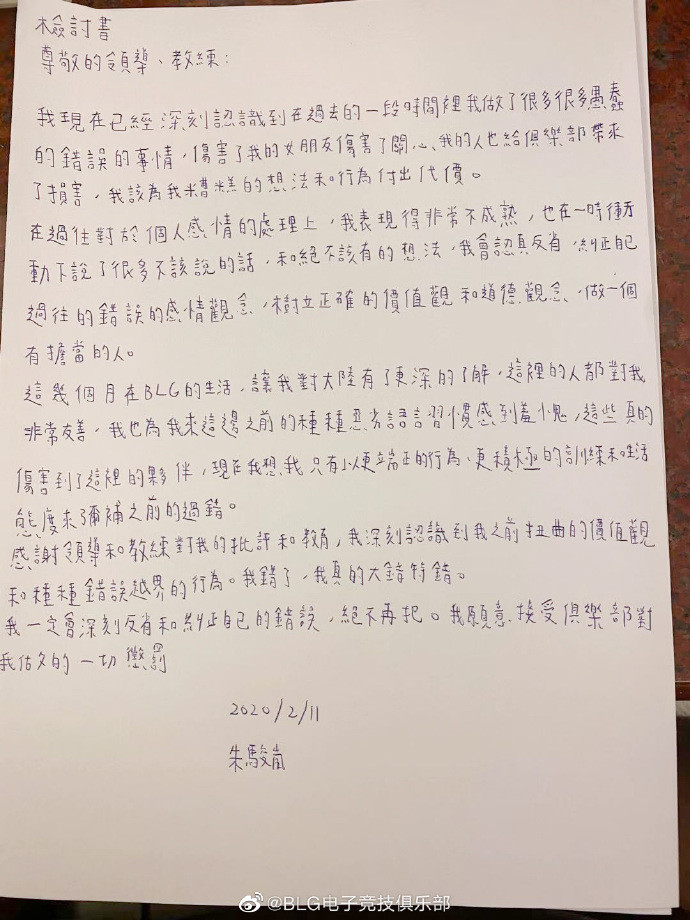 檢討書
尊敬的領導、教練：
我現在已經深刻認識到在過去的一段時間裡我做了很多很多愚蠢
的錯誤的事情，傷害了我的女朋友傷害了關心我的人也給俱樂部帶來
了損害，我該為我糟糕的想法和行為付出代價。
在過往對於個人感情的處理上，我表現得非常不成熟，也在一時衝
動下說了很多不該說的話，和絕不該有的想法，我會認真反省，糾正自己
過往的錯誤的感情觀念，樹立正確的價值觀和道德觀念，做一個
有擔當的人。
這幾個月在BLG的生活，讓我對大陸有了更深的了解，這裡的人都對我
非常友善，我也為我來這邊之前的種種惡劣語言習慣感到羞愧，這些真的
傷害到了這裡的夥伴，現在我想，我只有以更端正的行為、更積極的訓練和生活
態度來彌補之前的過錯。
感謝領導和教練對我的批評和教育，我深刻認識到我之前扭曲的價值觀
和種種錯誤越界的行為。我錯了，我真的大錯特錯。
我一定會深刻反省和糾正自己的錯誤，絕不再犯。我願意接受俱樂部對
我做的一切懲罰
2020/2/11
朱駿嵐
@BLG电子竞技俱乐部